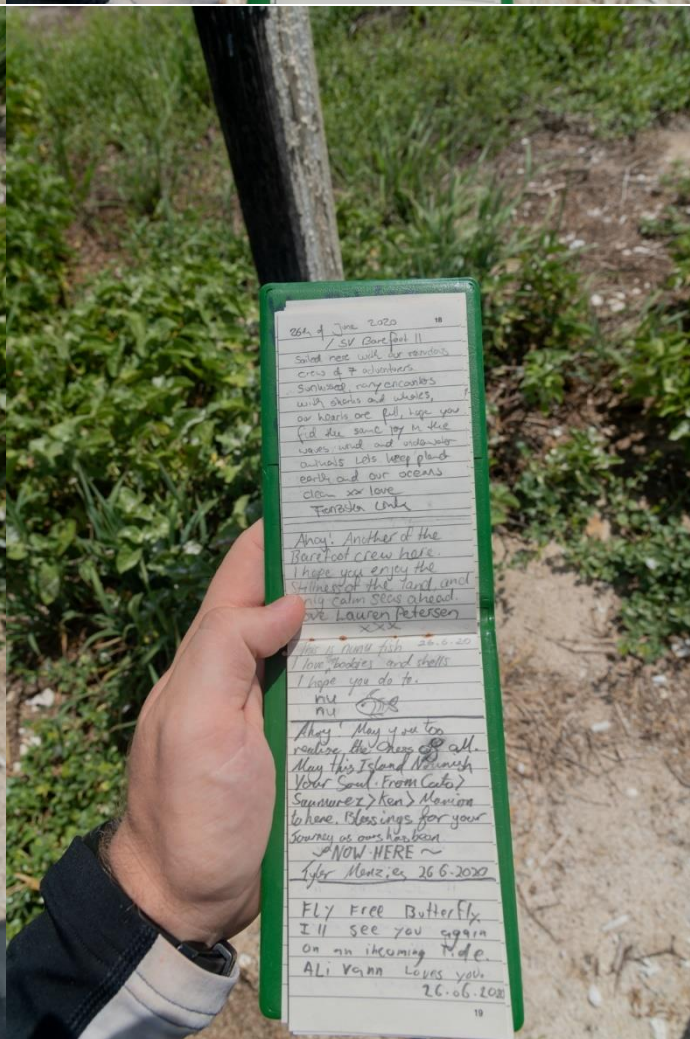 26th of June 2020
18
/ SV Barefoot II
Sailed here with our
crew of 7 adventurers
Sunkissed, many encounters
with sharks and whales,
our hearts are full, hope you
find the same joy in the
waves, wind and underwater
animals Lets keep planet
earth and our oceans
clean xx love
Ahoy! Another of the
Barefoot crew here.
I hope you enjoy the
Stillness of the land and
only calm seas ahead.
Love Lauren Petersen
xxx
This is nunu fish 26.6.20
I love the boobies and shells
I hope you do to.
nu
nu
Ahoy! May you too
realise the Oness of all.
May this Island Nourish
Your Soul. From Cato>
Saumurez>Ken>Marion
to here. Blessings for your
Journey as ours has been
~NOW HERE~
Tyler Menzies 26 6.2020
FLy Free Butterfly,
I'll see you again
on an incoming Tide.
ALi Vann Loves you.
26.06.2020
19